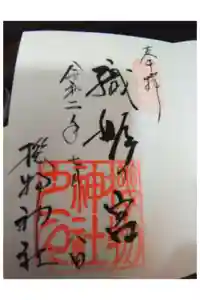 奉拝
織姫の宮
令和二年七月 日
機物神社